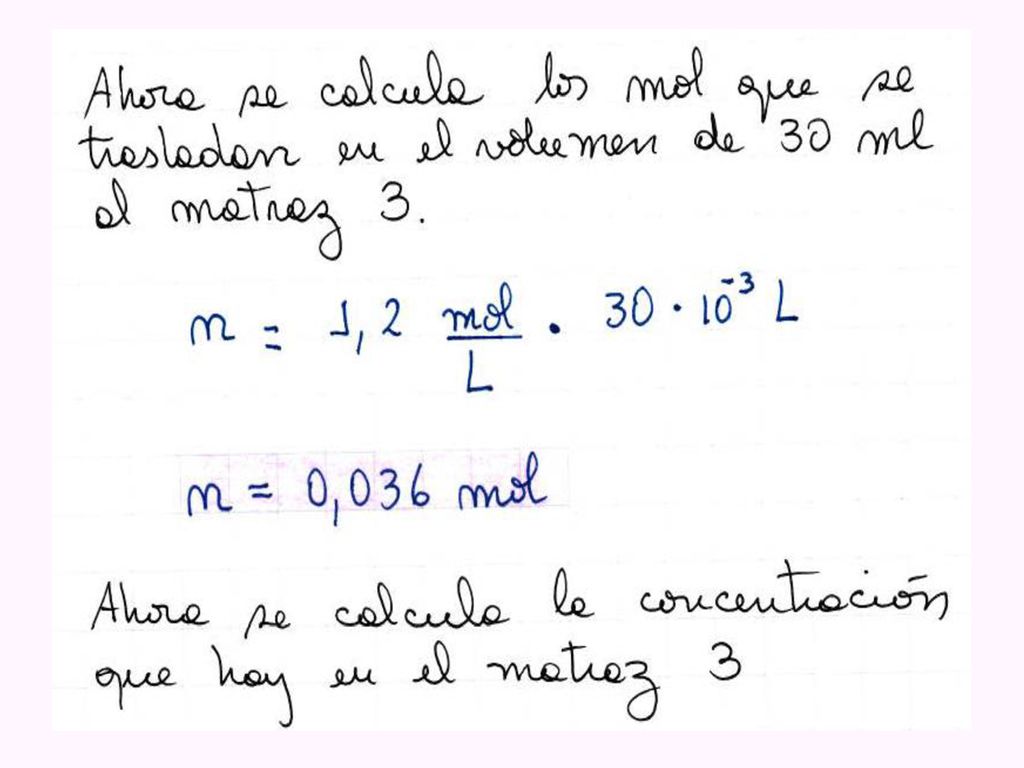 Ahora se calcula los mol que se
trasladan en el volumen de 30 ml
al matraz 3.
n = 1,2 mol/L · 30 · 10⁻³ L
n = 0,036 mol
Ahora se calcula la concentración
que hay en el matraz 3